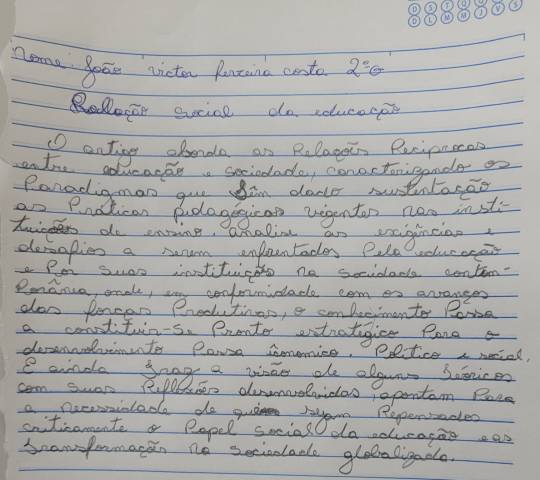 D S T Q Q S S
D L M M J V S
Nome: João victor ferreira costa 2º G
Redação social da educação
O antigo aborda as Relações Reciprocas
entre educação e sociedade, caracterizando os
Paradigmas que Sim dado sustentação
as Praticas pedagógicas vigentes nas insti-
tuições de ensino analise as exigências e
desafios a serem enfrentados Pela educação
e Por suas instituições na sociedade contem-
Porânia, onde, em conformidade com os avanços
das forças Produtivas, o conhecimento Passa
a constituir-se Pronto estratégico Para o
desenvolvimento Passa iconomico. Politico e social.
E ainda Traz a visão de alguns Teóricos
com suas Reflexões desenvolvidas, apontam Para
a necessidade de sejam Repensados
criticamente o Papel social da educação e as
transformação na sociedade globalizada.